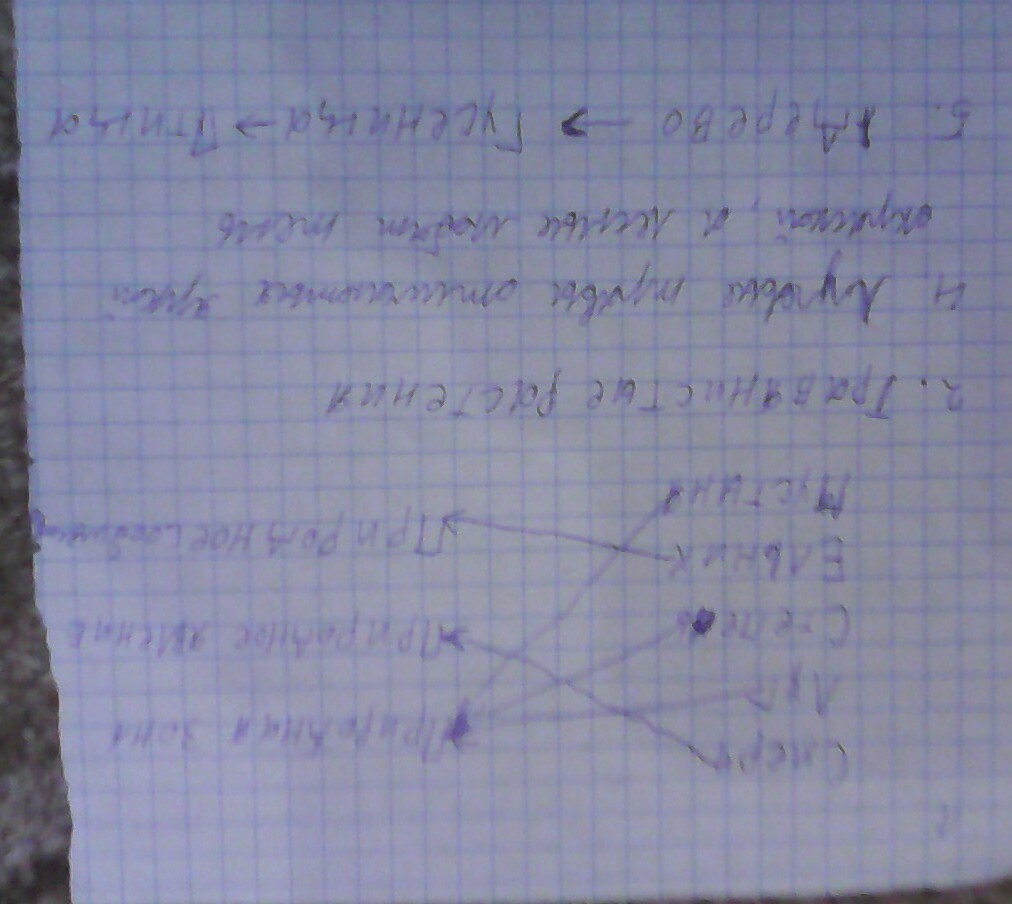 Смерч Природная зона
Луг Природное явление
Степь
Ельник Природное сообщество
Пустыня
2. Травянистые растения
4 Луговые травы отличаются яркой
окраской, а лесные любят тень
5. Дерево → Гусеница → Птица